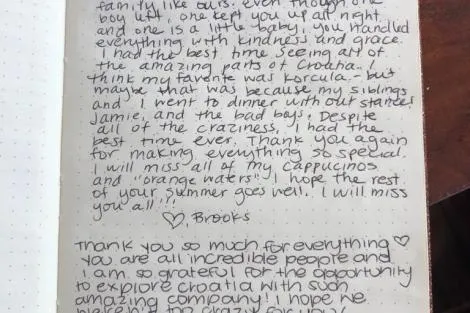 family like ours. even though one
boy left, one kept you up all night
and one is a little baby, you handled
everything with kindness and grace.
I had the best time seeing all of
the amazing parts of Croatia.. I
think my favorite was Korcula - but
maybe that was because my siblings
and I went to dinner with out
Jamie, and the bad boys. Despite
all of the craziness, I had the
best time ever. Thank you again
for making everything so special.
I will miss all of my cappucinos
and "orange waters". I hope the rest
of your summer goes well. I will miss
you all!!!
♡, Brooks
Thank you so much for everything ♡
you are all incredible people and
I am so grateful for the opportunity
to explore croatia with such
amazing company! I hope we
weren't too crazy for you!